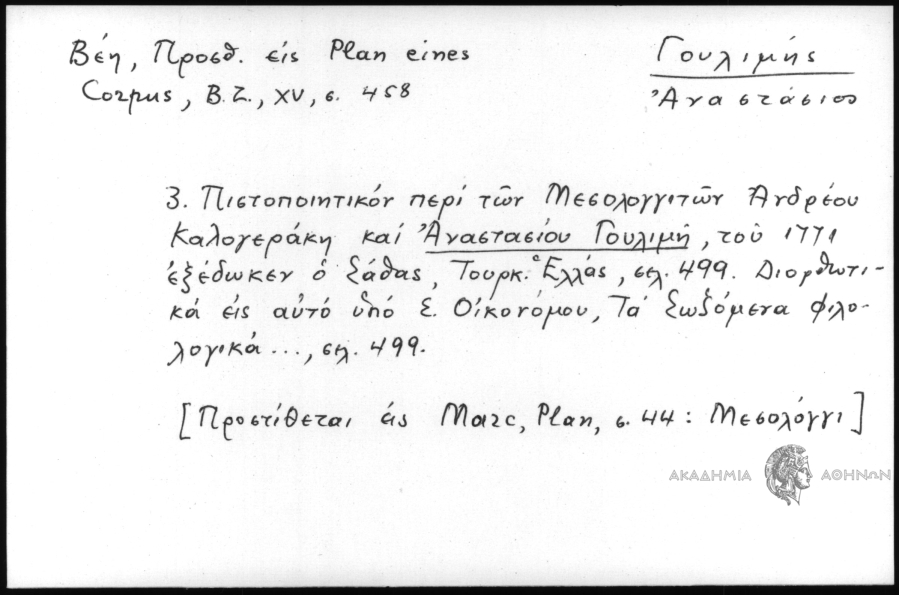 Βέη, Προσθ. εἰς Plan eines
Corpus, B.Z., XV, σ. 458
Γουλιμής
Ἀναστάσιος
3. Πιστοποιητικόν περί τῶν Μεσολογγιτῶν Ἀνδρέου
Καλογεράκη καί Ἀναστασίου Γουλιμῆ, τοῦ 1771
ἐξέδωκεν ὁ Σάθας, Τουρκ. Ἑλλάς, σελ. 499. Διορθωτι-
κά εἰς αὐτό ὑπό Σ. Οἰκονόμου, Τά Σωζόμενα φιλο-
λογικά..., σελ. 499.
[Προστίθεται εἰς Marc, Plan, σ. 44 : Μεσολόγγι]
ΑΚΑΔΗΜΙΑ ΑΘΗΝΩΝ